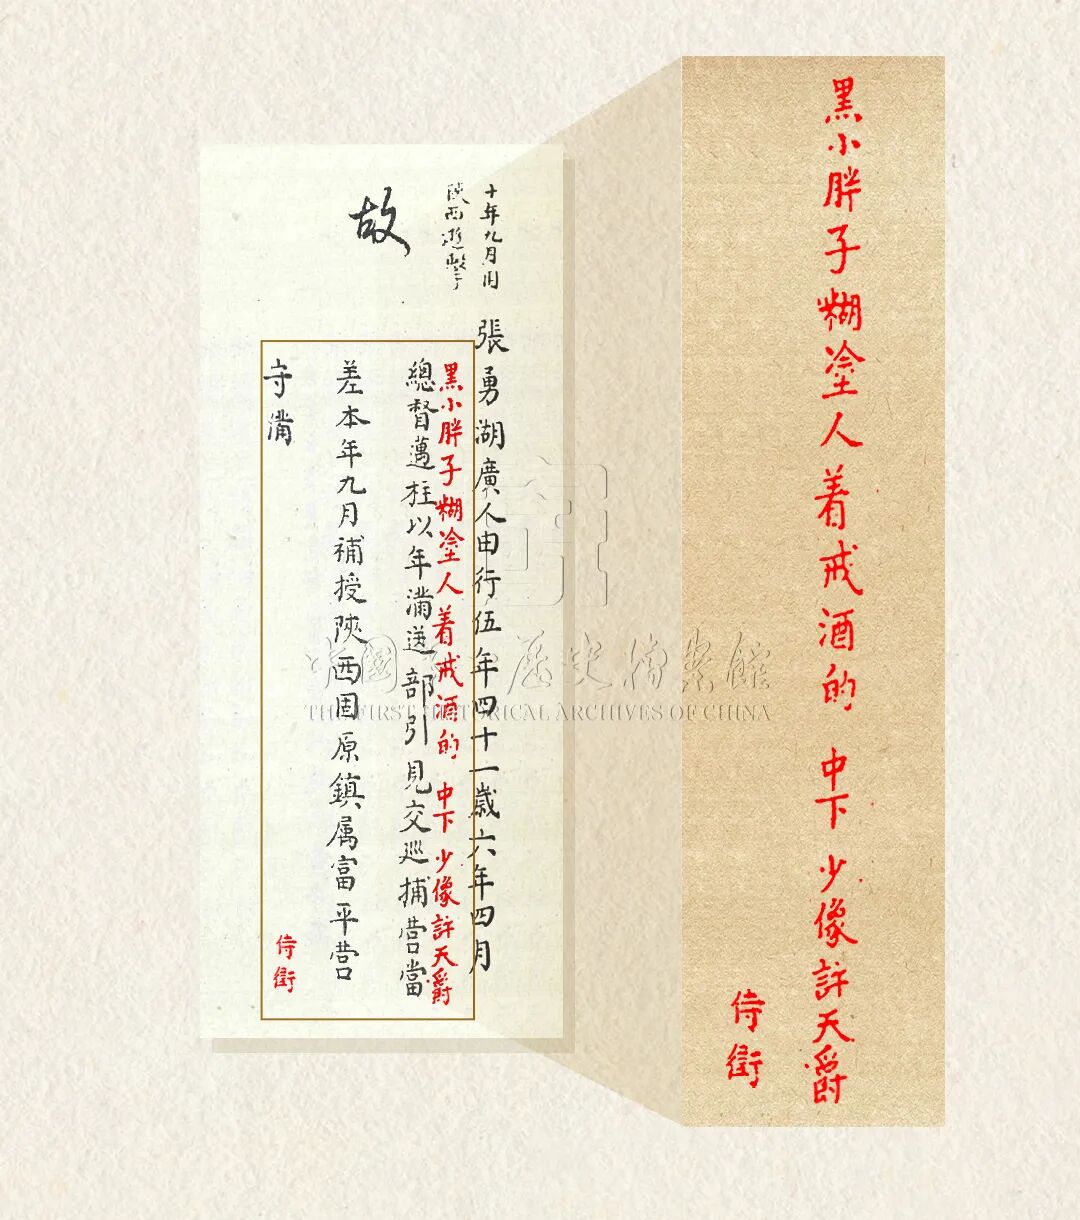 十年九月內
陝西遊擊
故
張勇湖廣人由行伍年四十一歲六年四月
黑小胖子糊塗人着戒酒的 中下 少像許天爵
總督邁柱以年滿送部引見交巡捕營當
差本年九月補授陝西固原鎮属富平營
守備
侍衛
中国第一历史档案馆
THE FIRST HISTORICAL ARCHIVES OF CHINA
黑小胖子糊塗人着戒酒的 中下 少像許天爵
侍衛